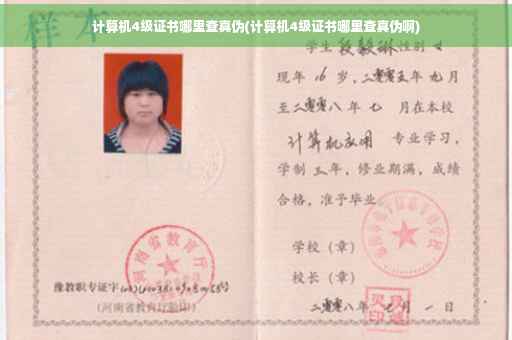 计算机4级证书哪里查真伪(计算机4级证书哪里查真伪啊)
样本
学生 段毅琳 性别 女
现年 16 岁，二零零五年 九 月
至二零零八 年 七 月在本校
计算机应用 专业学习，
学制 三 年，修业期满，成绩
合格，准予毕业。
学校（章）
校长（章）
二零零八年 七 月 一 日
河南省教育厅
豫教职专证字
号
(河南省教育厅验印)